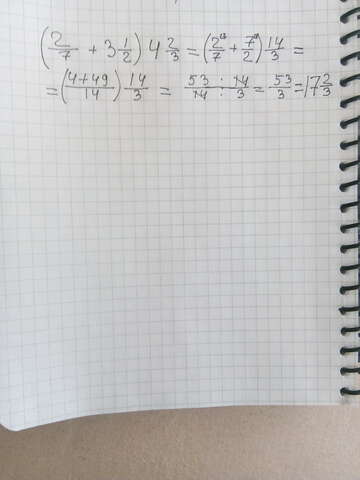 (2/7 + 3 1/2) 4 2/3 = (2/7 + 7/2) 14/3 =
= (4+49/14) 14/3 = 53/14 : 14/3 = 53/3 = 17 2/3